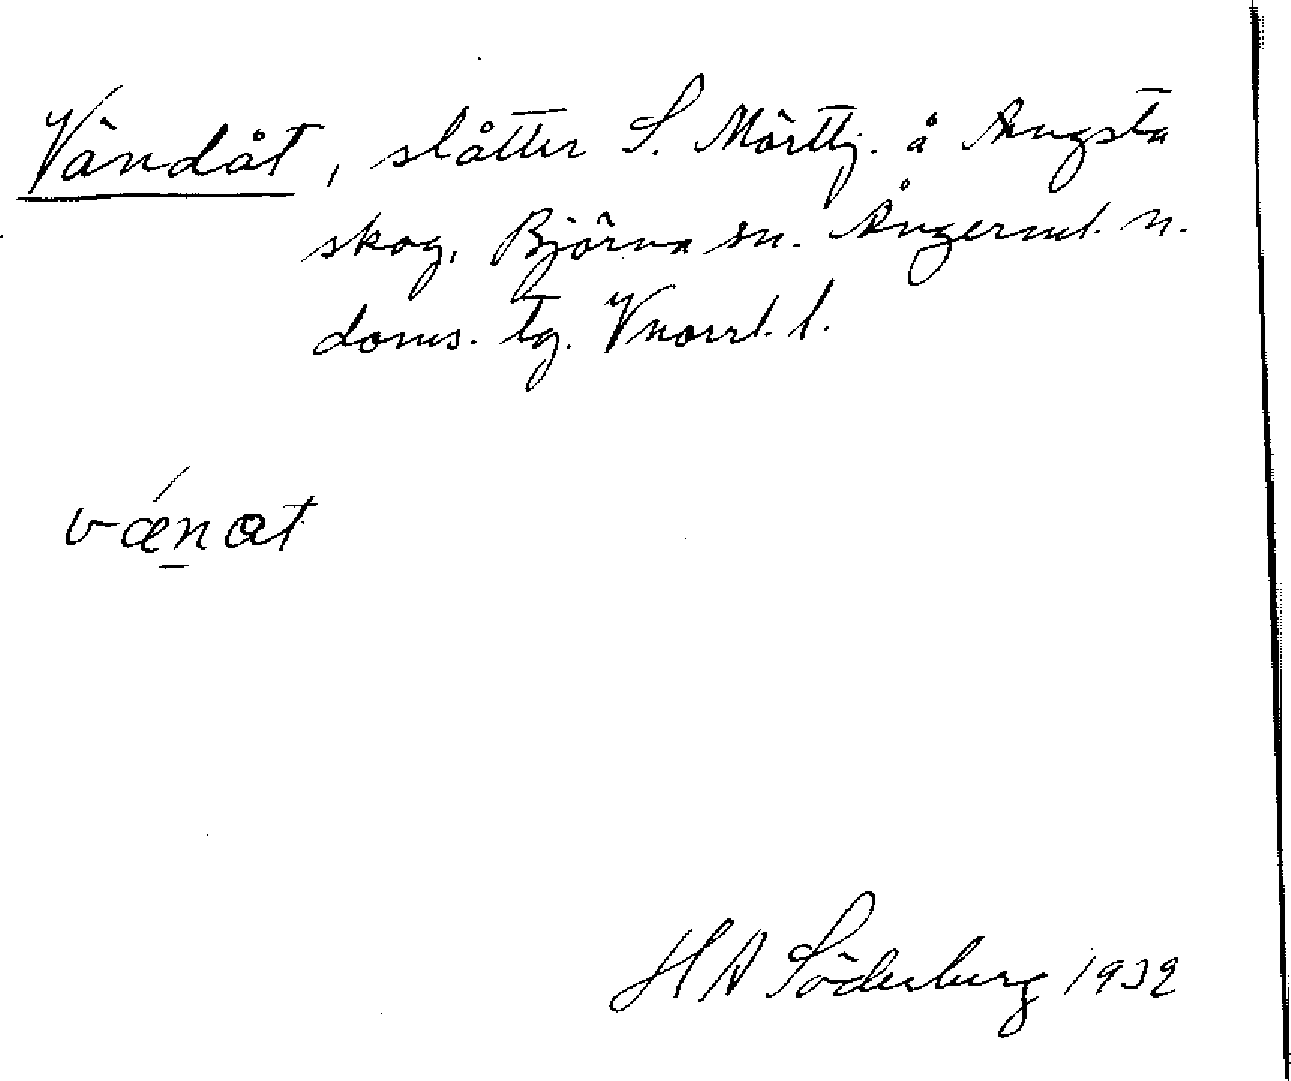 Vändåt, slåtter S. Mörttj. å Angsta
skog, Björna sn. Ångerml. n.
doms. tg. Vnorrl. l.
vǽn̲at
H A Söderberg 1932